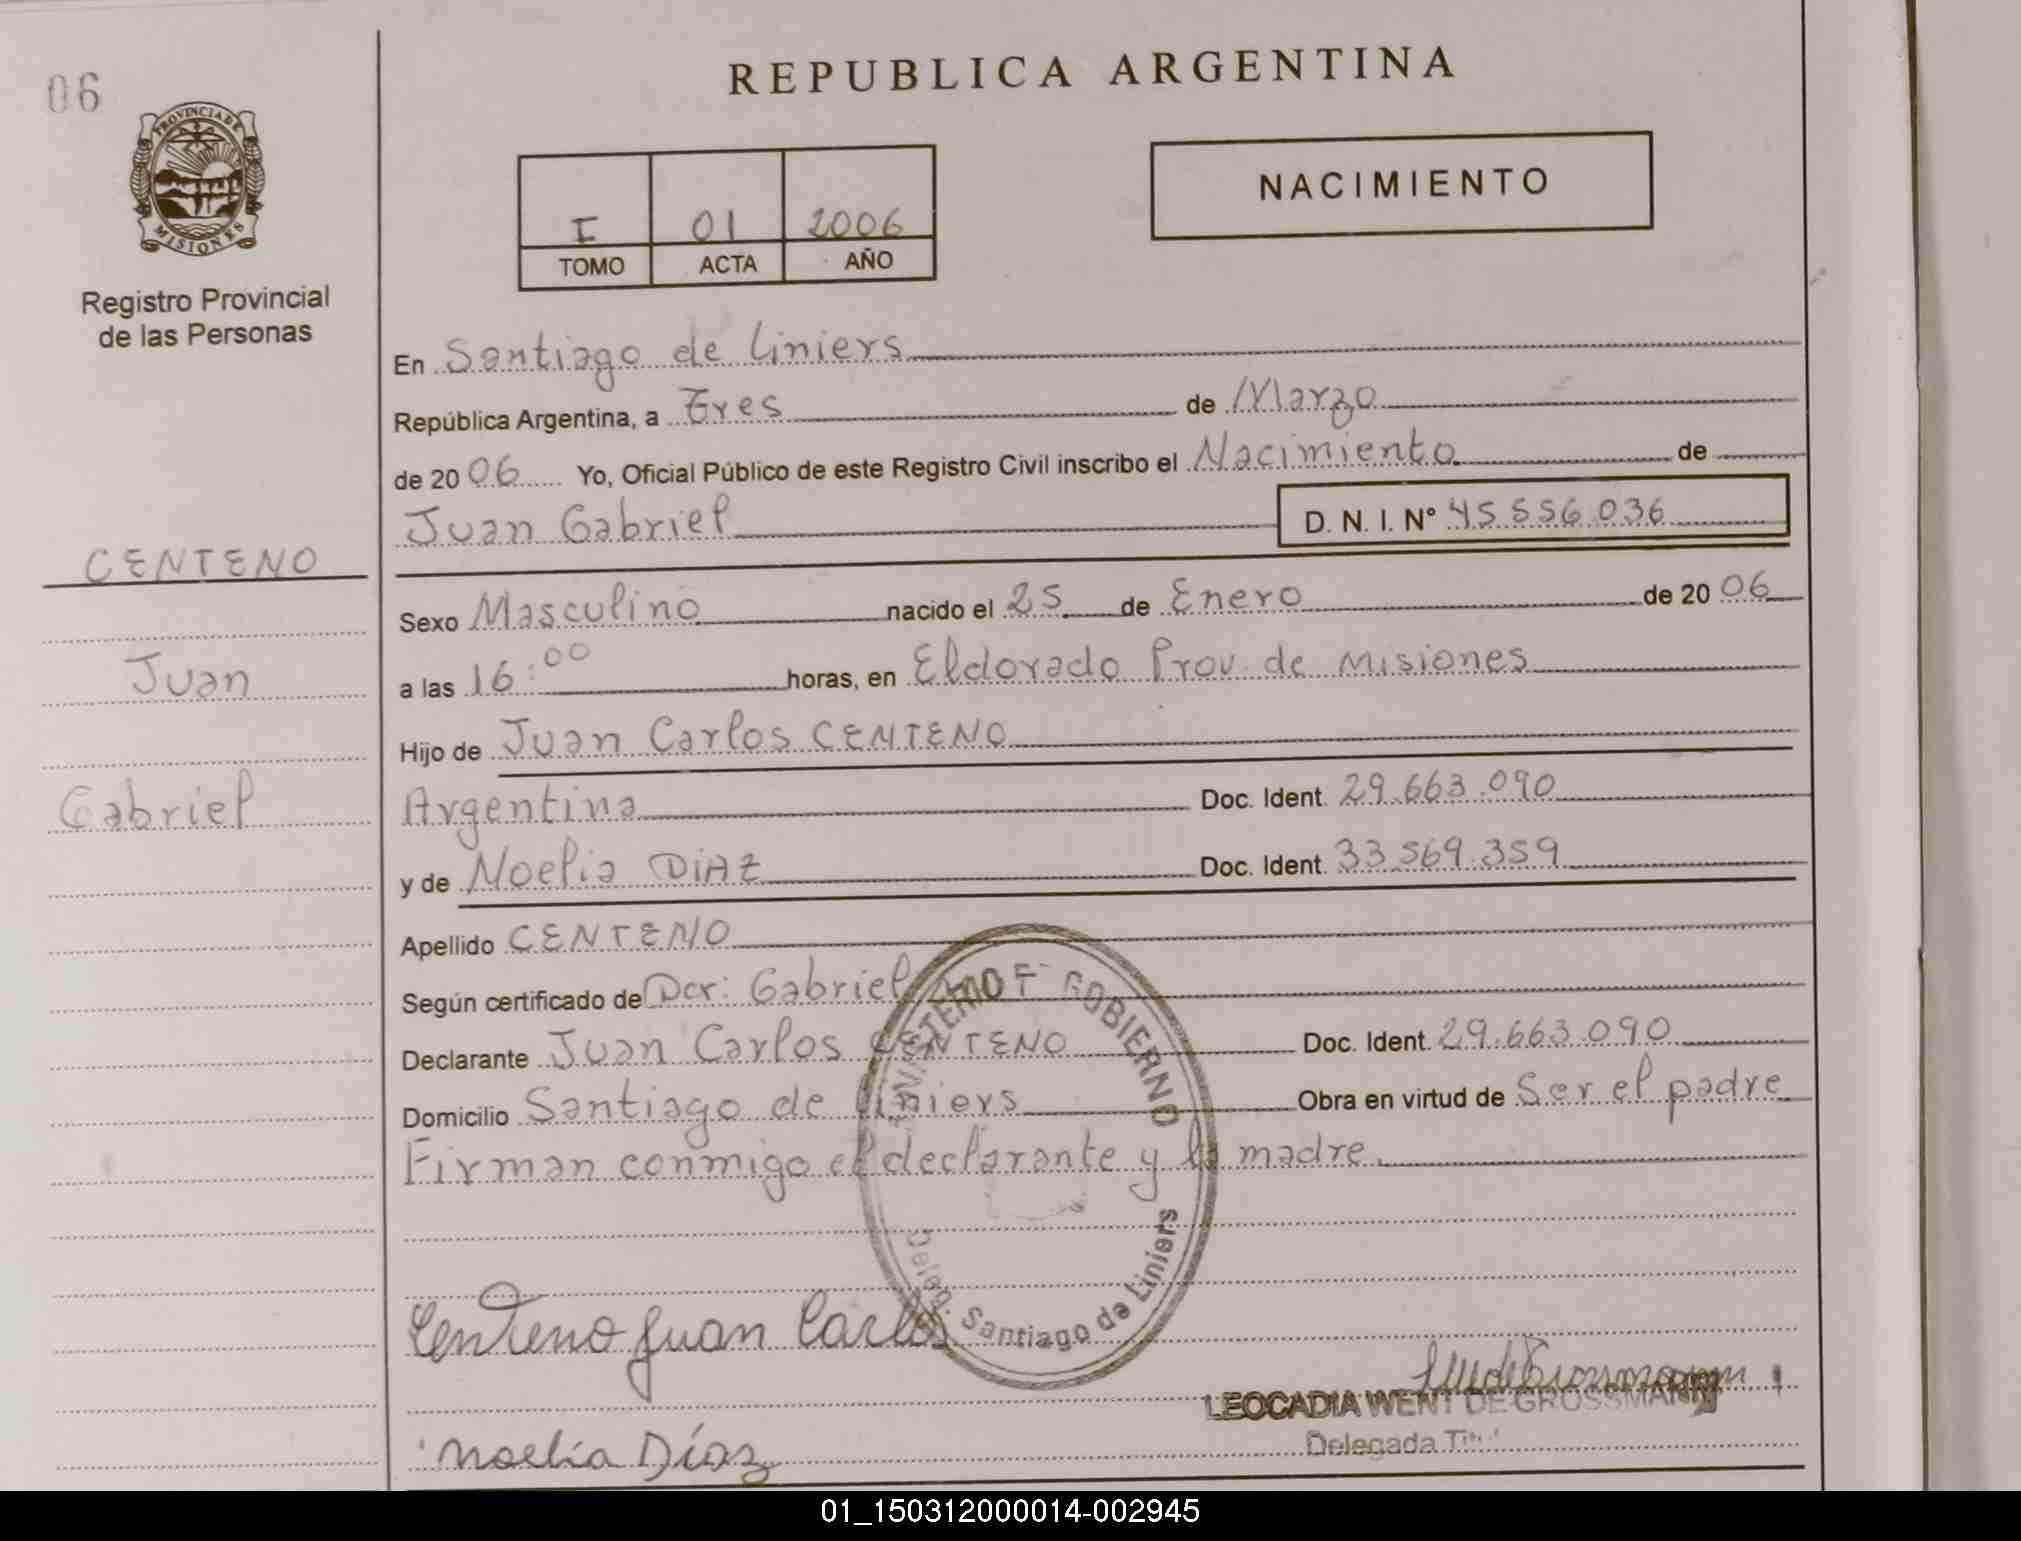 06
PROVINCIA DE
MISIONES
Registro Provincial
de las Personas
CENTENO
Juan
Gabriel
REPUBLICA ARGENTINA
I 01 2006
TOMO ACTA AÑO
NACIMIENTO
En Santiago de Liniers
República Argentina, a Tres de Marzo
de 20 06 Yo, Oficial Público de este Registro Civil inscribo el Nacimiento de
Juan Gabriel D. N. I. N° 45.556.036
Sexo Masculino nacido el 25 de Enero de 20 06
a las 16:00 horas, en Eldorado Prov. de Misiones
Hijo de Juan Carlos CENTENO
Argentina Doc. Ident. 29.663.090
y de Noelia DiAZ Doc. Ident. 33.569.359
Apellido CENTENO
Según certificado de Dcr: Gabriel
Declarante Juan Carlos CENTENO Doc. Ident. 29.663.090
Domicilio Santiago de Liniers Obra en virtud de Ser el padre
Firman conmigo el declarante y la madre.
GOBIERNO
Deleg. Santiago de Liniers
Centeno Juan Carlos
LEOCADIA WENT DE GROSSMANN
Delegada
Noelia Díaz
01_150312000014-002945